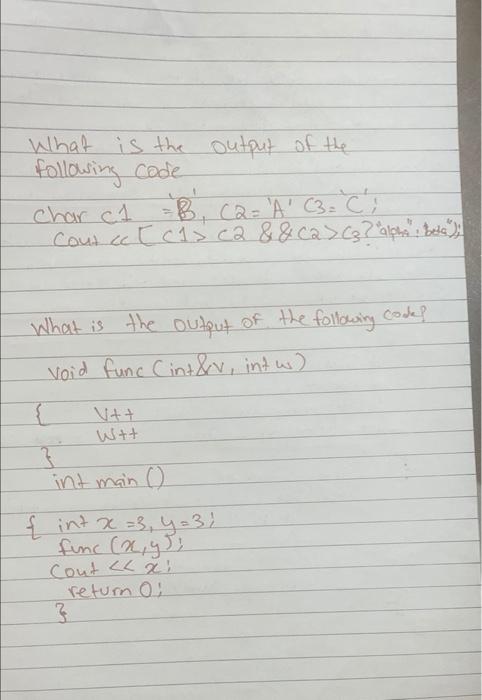 What is the output of the
following code
char c1 = 'B', C2 = 'A' C3 = 'C';
Cout << [ C1 > C2 && C2 > C3 ? "alpha" : beta");
What is the output of the following code?
void func (int &v, int w)
{ V++
W++
}
int main ()
{ int x = 3, y = 3;
func (x, y);
Cout << x;
return 0;
}